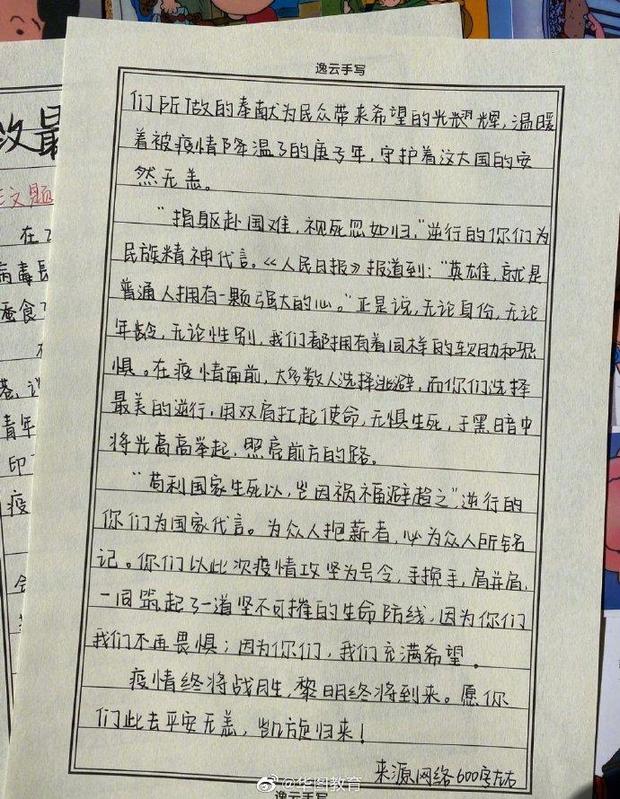 逸云手写
们所做的奉献为民众带来希望的光耀辉,温暖
着被疫情降温了的庚子年,守护着这大国的安
然无恙。
"捐躯赴国难,视死忽如归,"逆行的你们为
民族精神代言。《人民日报》报道到:"英雄,就是
普通人拥有一颗强大的心。"正是说,无论身份,无论
年龄,无论性别,我们都拥有着同样的软肋和恐
惧。在疫情面前,大多数人选择逃避,而你们选择
最美的逆行,用双肩扛起使命,无惧生死,于黑暗中
将光高高举起,照亮前方的路。
"苟利国家生死以,岂因祸福避趋之",逆行的
你们为国家代言。为众人抱薪者,必为众人所铭
记。你们以此次疫情攻坚为号令,手挽手,肩并肩,
一同筑起了一道坚不可摧的生命防线,因为你们
我们不再畏惧;因为你们,我们充满希望。
疫情终将战胜,黎明终将到来。愿你
们此去平安无恙,凯旋归来!
来源网络600字左右
@华图教育
逸云手写
改最
文题
在
病毒
蚕食了
青年
印
疫